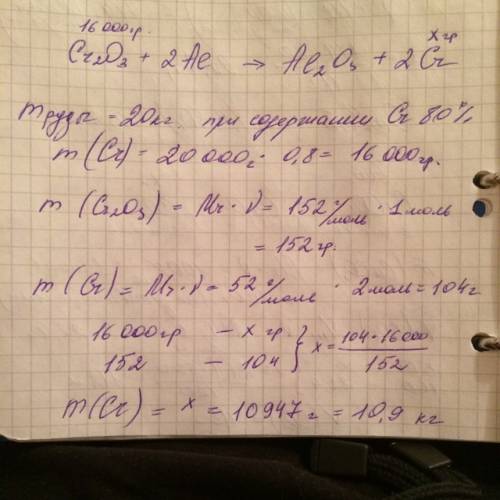 16 000гр. x гр
Cr₂O₃ + 2Al → Al₂O₃ + 2Cr
mруды = 20кг. при содержании Cr 80%
m(Cr) = 20 000г · 0,8 = 16 000гр.
m(Cr₂O₃) = Mr · ν = 152 г/моль · 1моль
= 152гр.
m(Cr) = Mr · ν = 52 г/моль · 2моль = 104г
16 000гр — x гр.
152 — 104 } x = 104·16000/152
m(Cr) = x = 10947 г = 10,9 кг